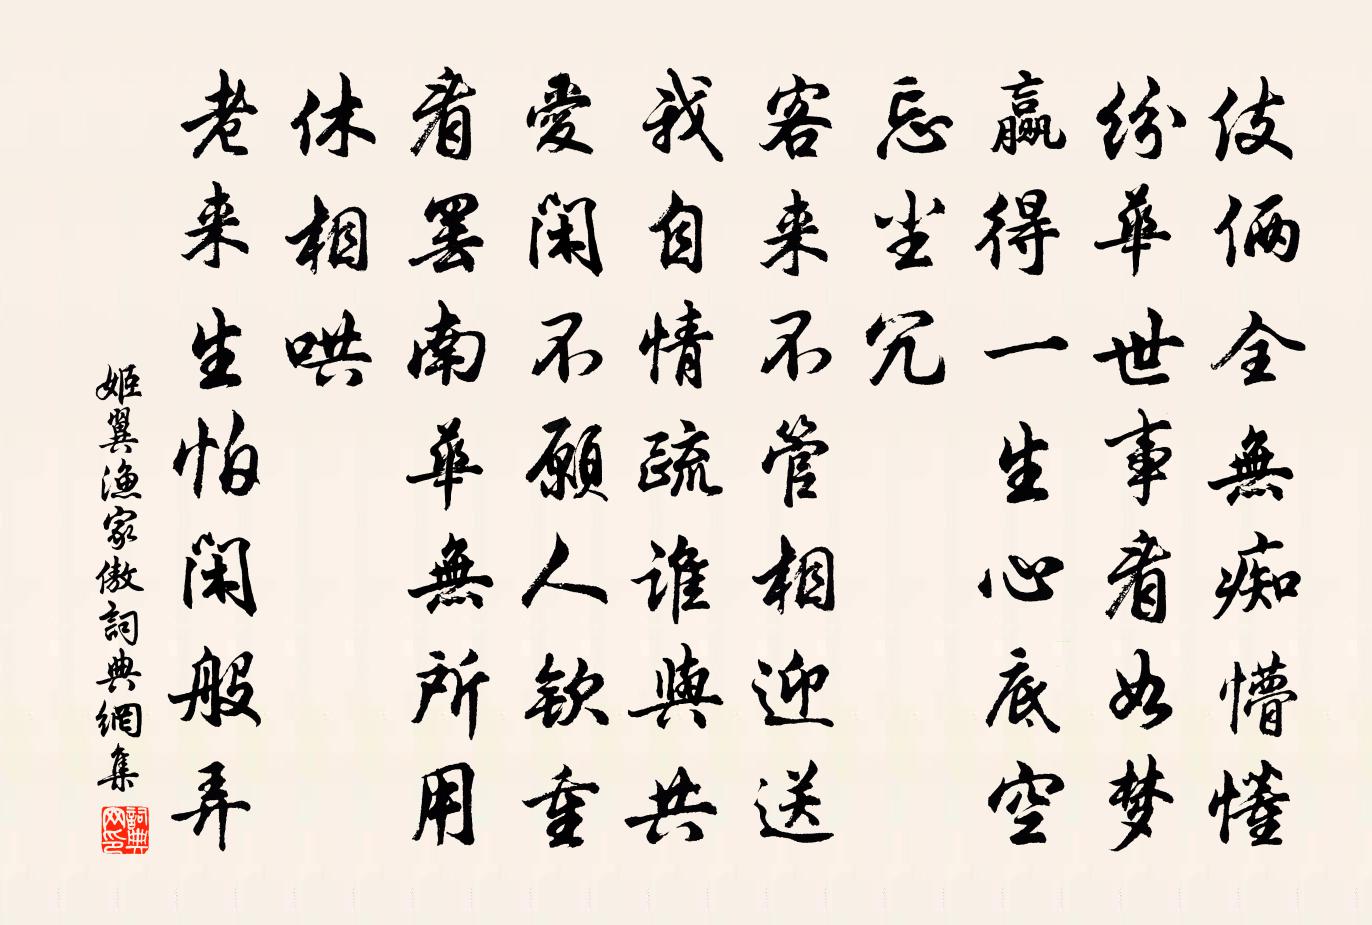 伎倆全無痴懵懂
紛華世事看如梦
贏得一生心底空
忘坐冗
客来不管相迎送
我自情疏誰與共
愛閑不願人欽重
看罢南華無所用
休相哄
老来生怕閑般弄
姬翼漁家傲詞典網集
詞典网印